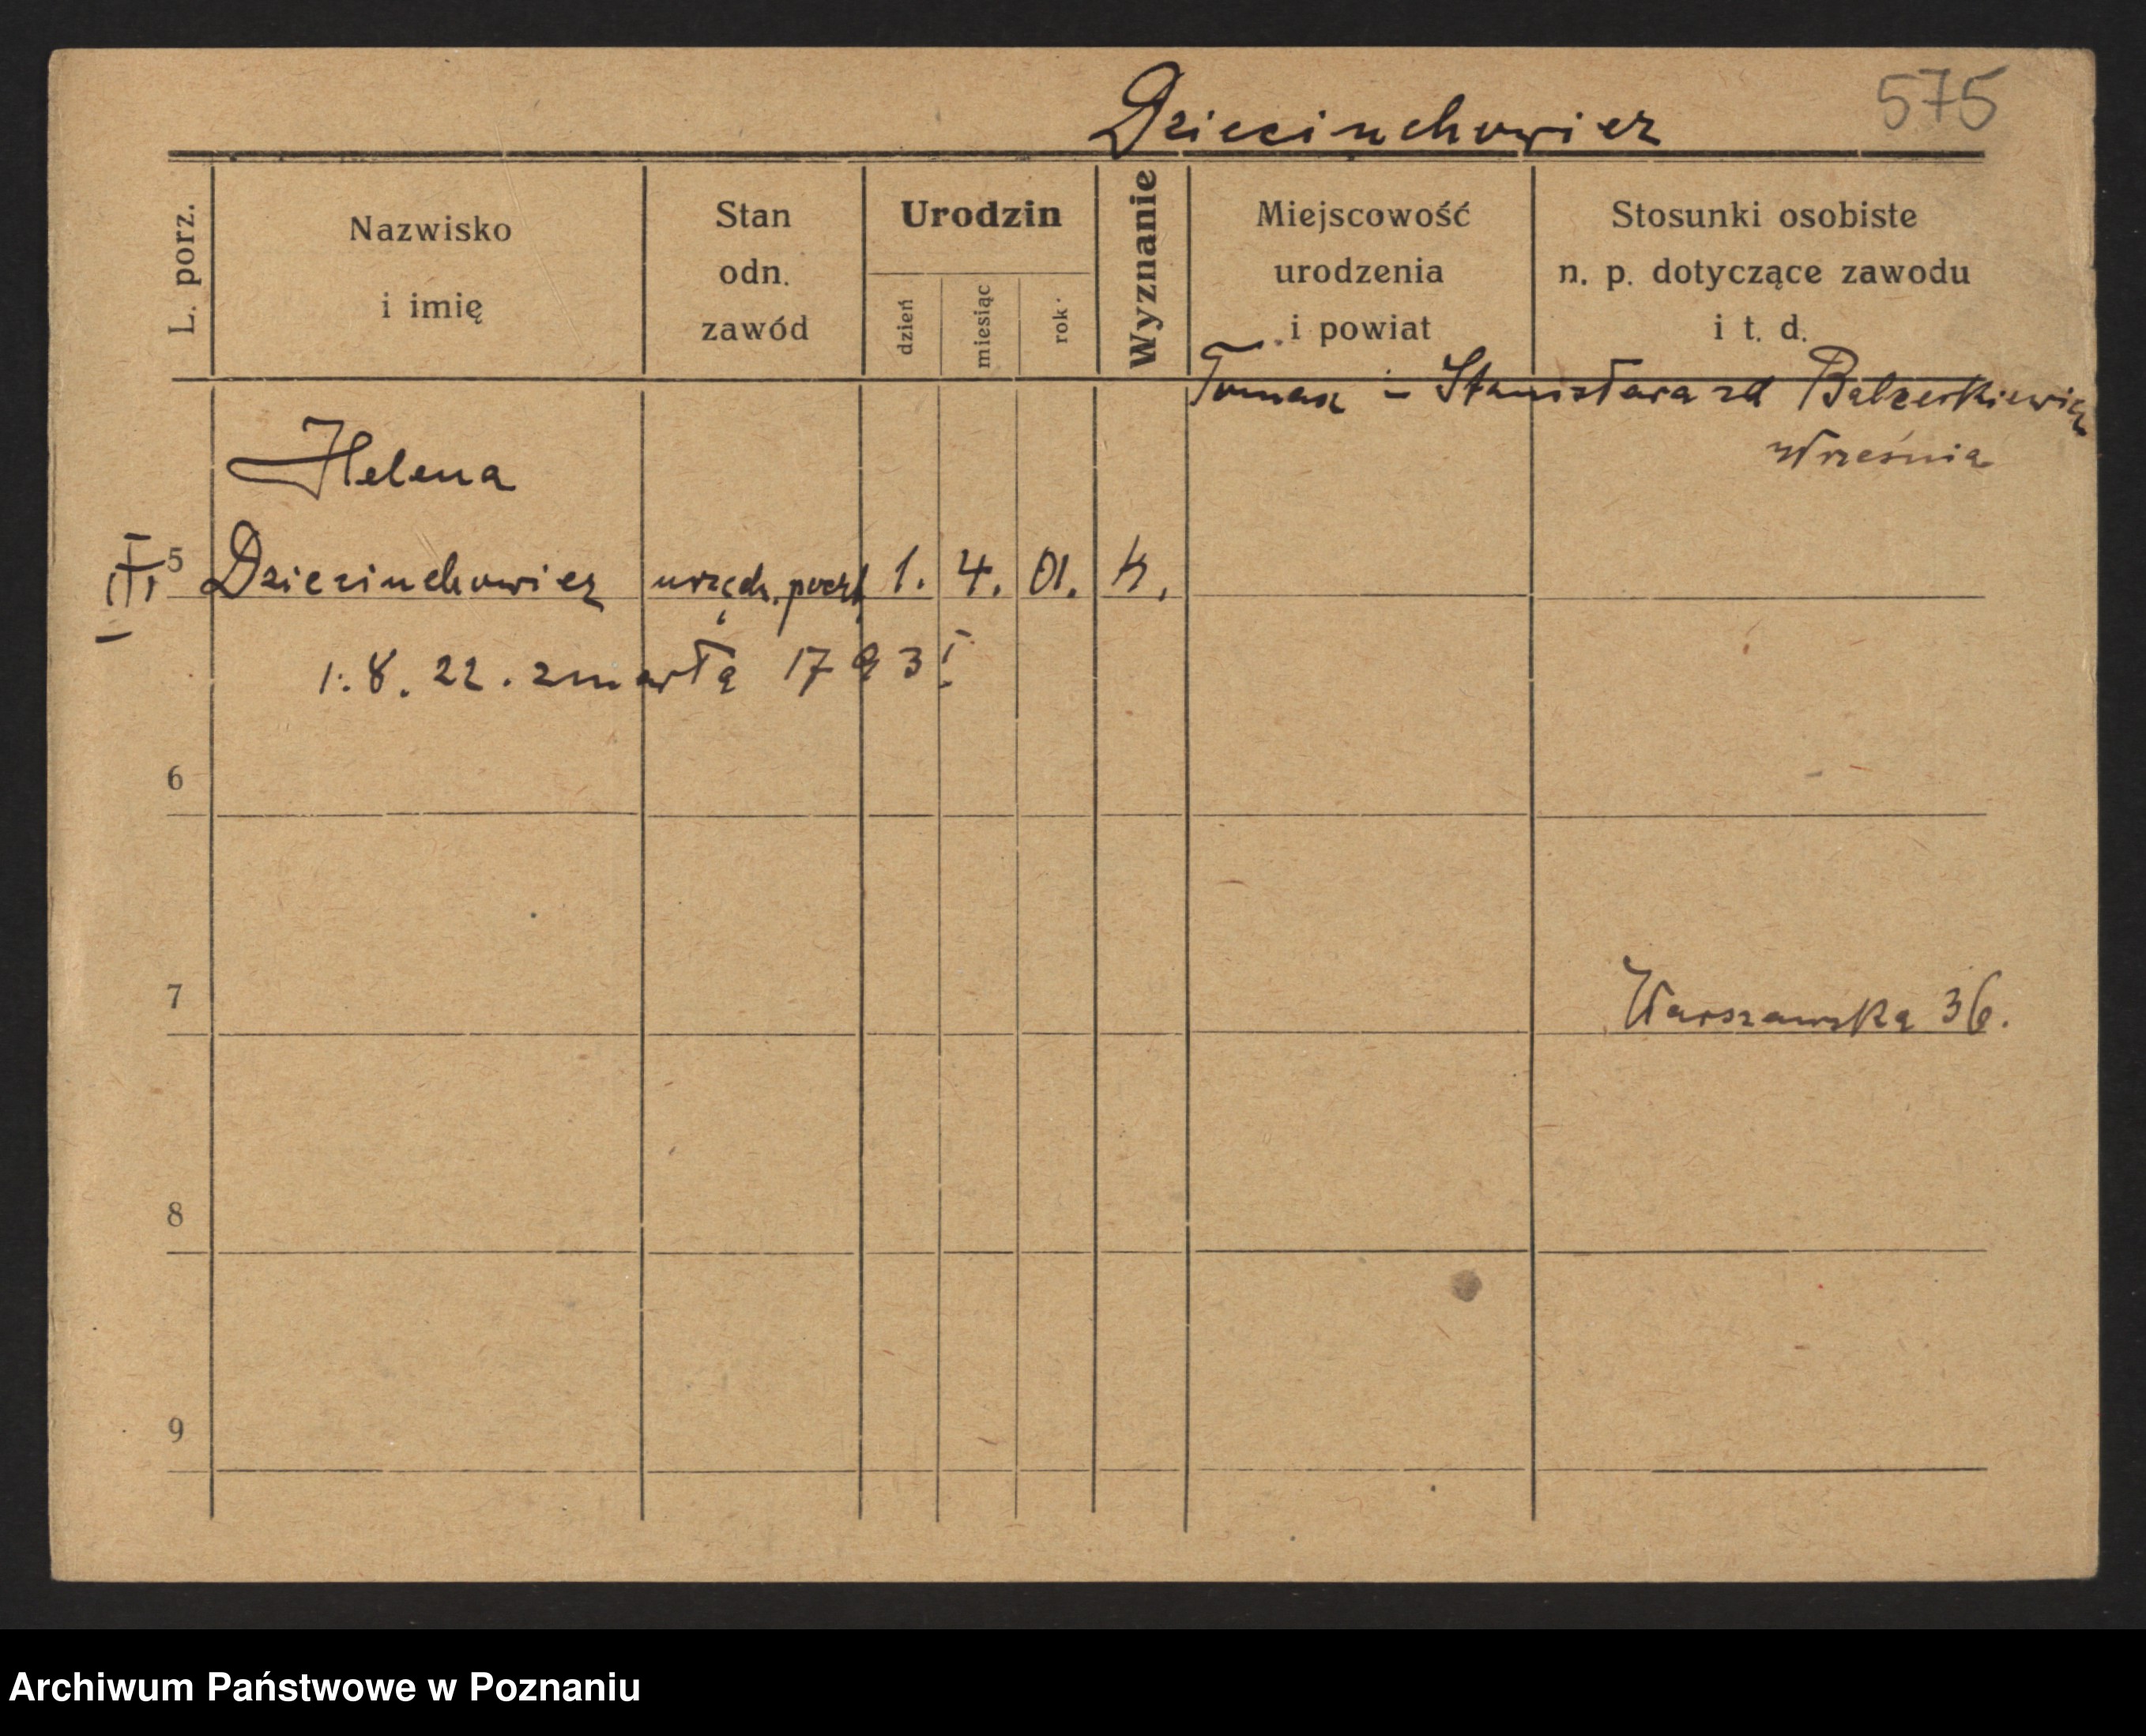 575
Dzieciuchowicz
L. porz.
Nazwisko i imię
Stan odn. zawód
Urodzin
dzień
miesiąc
rok
Wyznanie
Miejscowość urodzenia i powiat
Stosunki osobiste n. p. dotyczące zawodu i t. d.
Tomasz i Stanisława zd Balcerkiewicz
Września
Helena
III
5 Dzieciuchowicz urzędn. poczt 1. 4. 01. k.
1. 8. 22. zmarła 1793 I
6
7
Warszawska 36.
8
9
Archiwum Państwowe w Poznaniu